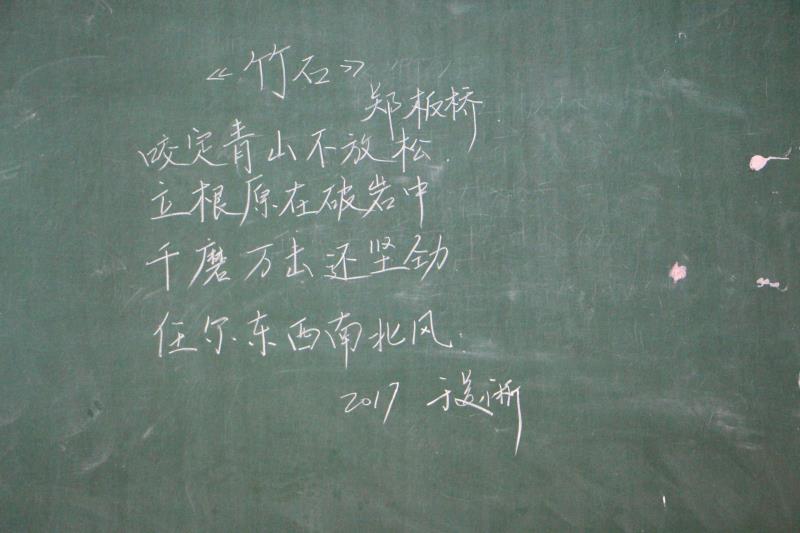 《竹石》
郑板桥.
咬定青山不放松.
立根原在破岩中
千磨万击还坚劲
任尔东西南北风.
2017 于